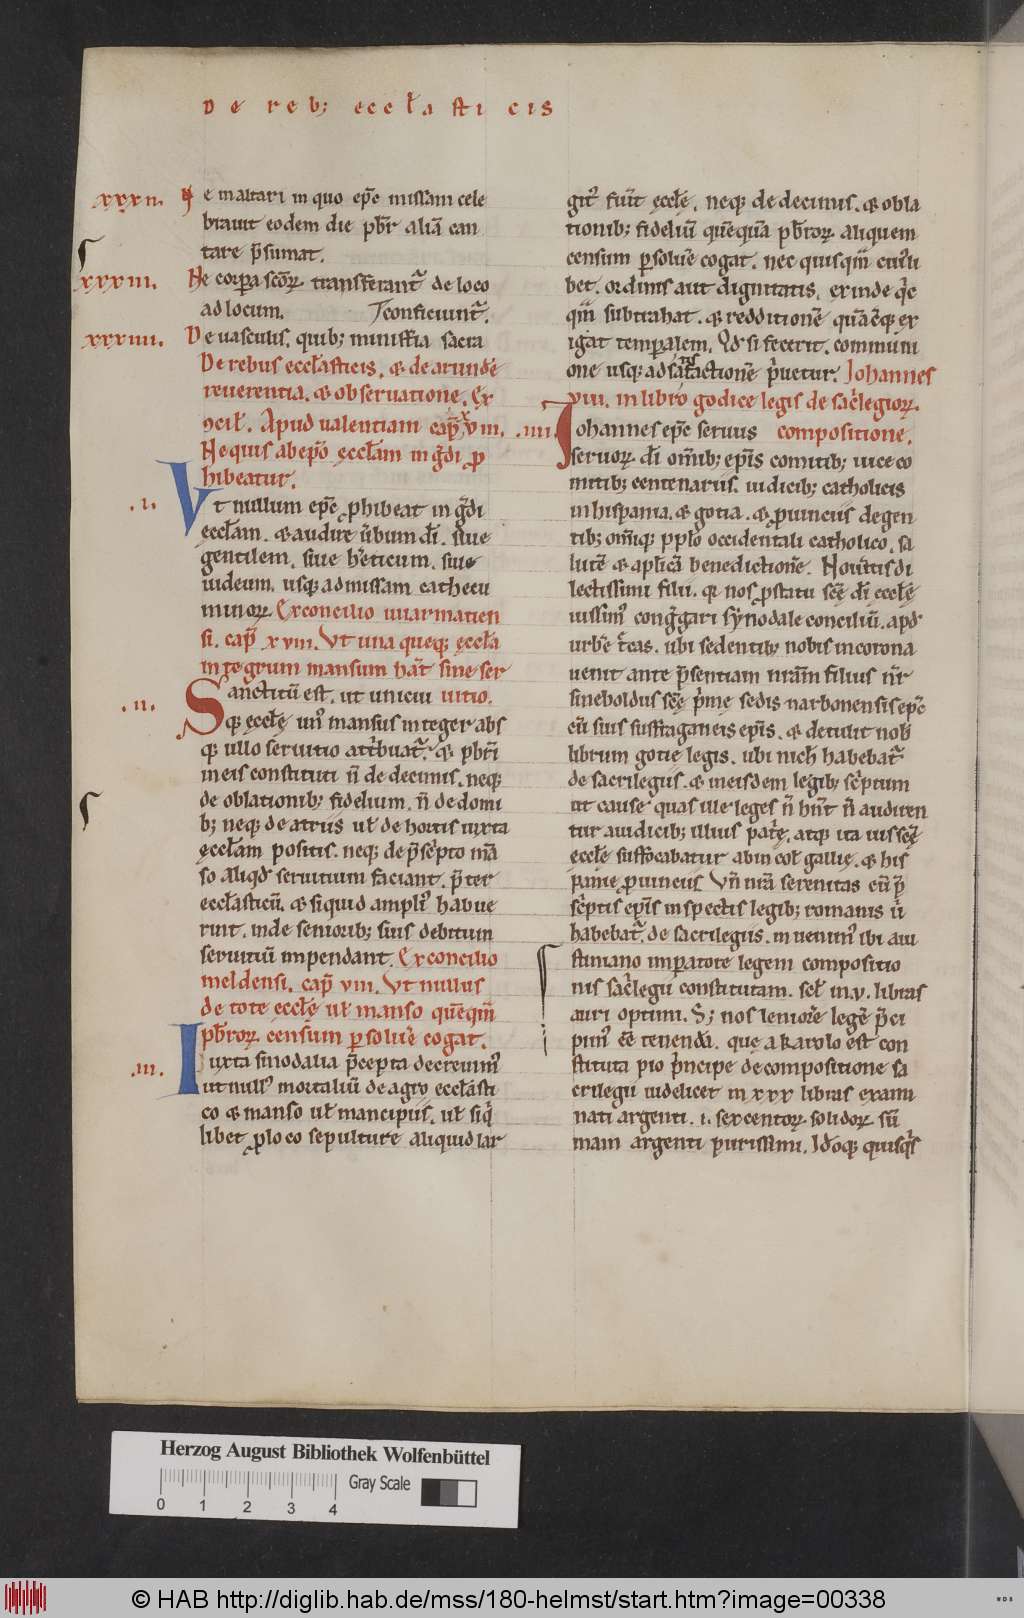 De reb; eccl̄asticis
xxxii. Ne in altari in quo ep̄c missam cele
brauit eodem die pb̄r aliā can
tare p̄sumat.
xxxiii. Ne corpora sc̄oꝝ transferant᷑ de loco
ad locum. conficiunt᷑.
xxxiiii. De uasculis, quib; minist̄ia sacra
De rebus eccl̄asticis, & de earundē
reuerentia, & obseruatione. Ex
ꝯcil̄. Apud ualentiam cap̄ xviii.
Ne quis ab ep̄o ęccl̄am ingr̄di ꝓ
hibeatur.
.i. Vt nullum ep̄c ꝓhibeat ingr̄di
ęccl̄am, & audire ūbum dī, siue
gentilem, siue hēticum, siue
iudeum, usq; ad missam cathecu
minoꝝ. Ex concilio uuarmatien
si. cap̄ xviii. Vt una queq; ęccl̄a
integrum mansum hāt sine ser
.ii. Sanctitū est, ut unicui uitio.
q; ęccl̄ę un᷒ mansus integer abs
q; ullo seruitio attbuat᷑, & pb̄ri
in eis constituti n̄ de decimis, neq;
de oblationib; fidelium, n̄ de domi
b; neq; de atriis ul̄ de hortis iuxta
ęccl̄am positis, neq; de p̄scpto mā
so aliqd seruitium faciant, p̄ter
eccl̄asticū. & siquid ampli᷒ habue
rint, inde seniorib; suis debitum
seruitiū impendant. Ex concilio
meldensi. cap̄ viii. Vt nullus
de dote eccl̄ę ul̄ manso quēqm̄
pb̄roꝝ censum ꝑsoluē cogat.
.iii. Iuxta sinodalia p̄cepta decreuim᷒
ut null᷒ mortaliū de agro eccl̄asti
co & manso ul̄ mancipiis, ul̄ siq̄
libet ꝓ loco sepulture aliquid lar
git᷒ fūit ęccl̄ę, neq; de decimis, & obla
tionib; fideliū quēquā pb̄roꝝ aliquem
censum ꝑsoluē cogat. nec quisqm̄ cui᷒li
bet, ordinis aut dignitatis, exinde qc̄
qm̄ subtrahat, & redditionē quācūq; ex
igat temporalem. Qd si fecerit, communi
one usq; ad satisfactionē p̄uetur. Iohannes
viii. in libro godice legis de sac̄legioꝝ
.iiii. Iohannes ep̄c seruus compositione.
seruoꝝ dī om̄ib; ep̄is comitib; uiceco
mitib; centenariis, iudicib; catholicis
in hispania, & gotia, & ꝓuinciis degen
tib; om̄iq; pplo occidentali catholico, sa
lutē & aplicā benedictionē. Nouitis di
lectissimi filii, q nos ꝓ statu scē dī eccl̄ę
iussim᷒ congr̄gari synodale conciliū, apd
urbē tcas. ubi sedentib; nobis in corona
uenit ante p̄sentiam nrām filius nr̄
sineboldus scę p̄mę sedis narbonensis ep̄c
cū suis suffraganeis ep̄is, & detulit nob̄
librum gotię legis, ubi nich̄ habebat᷑
de sacrilegiis, & in eisdem legib; sc̄ptum
ut cause quas ille leges n̄ hn̄t n̄ audiren
tur a iudicib; illius patrię, atq; ita ius scę
ęccl̄ę suffocabatur ab incol̄ gallię, & his
panię ꝓuinciis. Vn̄ nrā serenitas cū p̄
sc̄ptis ep̄is inspectis legib; romanis ū
habebat᷑ de sacrilegiis, inuenim᷒ ibi a iu
stiniano imperatore legem compositio
nis sac̄legii constitutam, scl̄ in .v. libras
auri optimi. S; nos leniorē legē p̄ci
pim᷒ eē tenendā, que a karolo est con
stituta pio p̄ncipe de compositione sa
crilegii uidelicet in xxx libras exami
nati argenti. i. sexcentoꝝ solidoꝝ sū
mam argenti purissimi. Idoq; quisq̄s
Herzog August Bibliothek Wolfenbüttel
Gray Scale
0 1 2 3 4
© HAB http://diglib.hab.de/mss/180-helmst/start.htm?image=00338